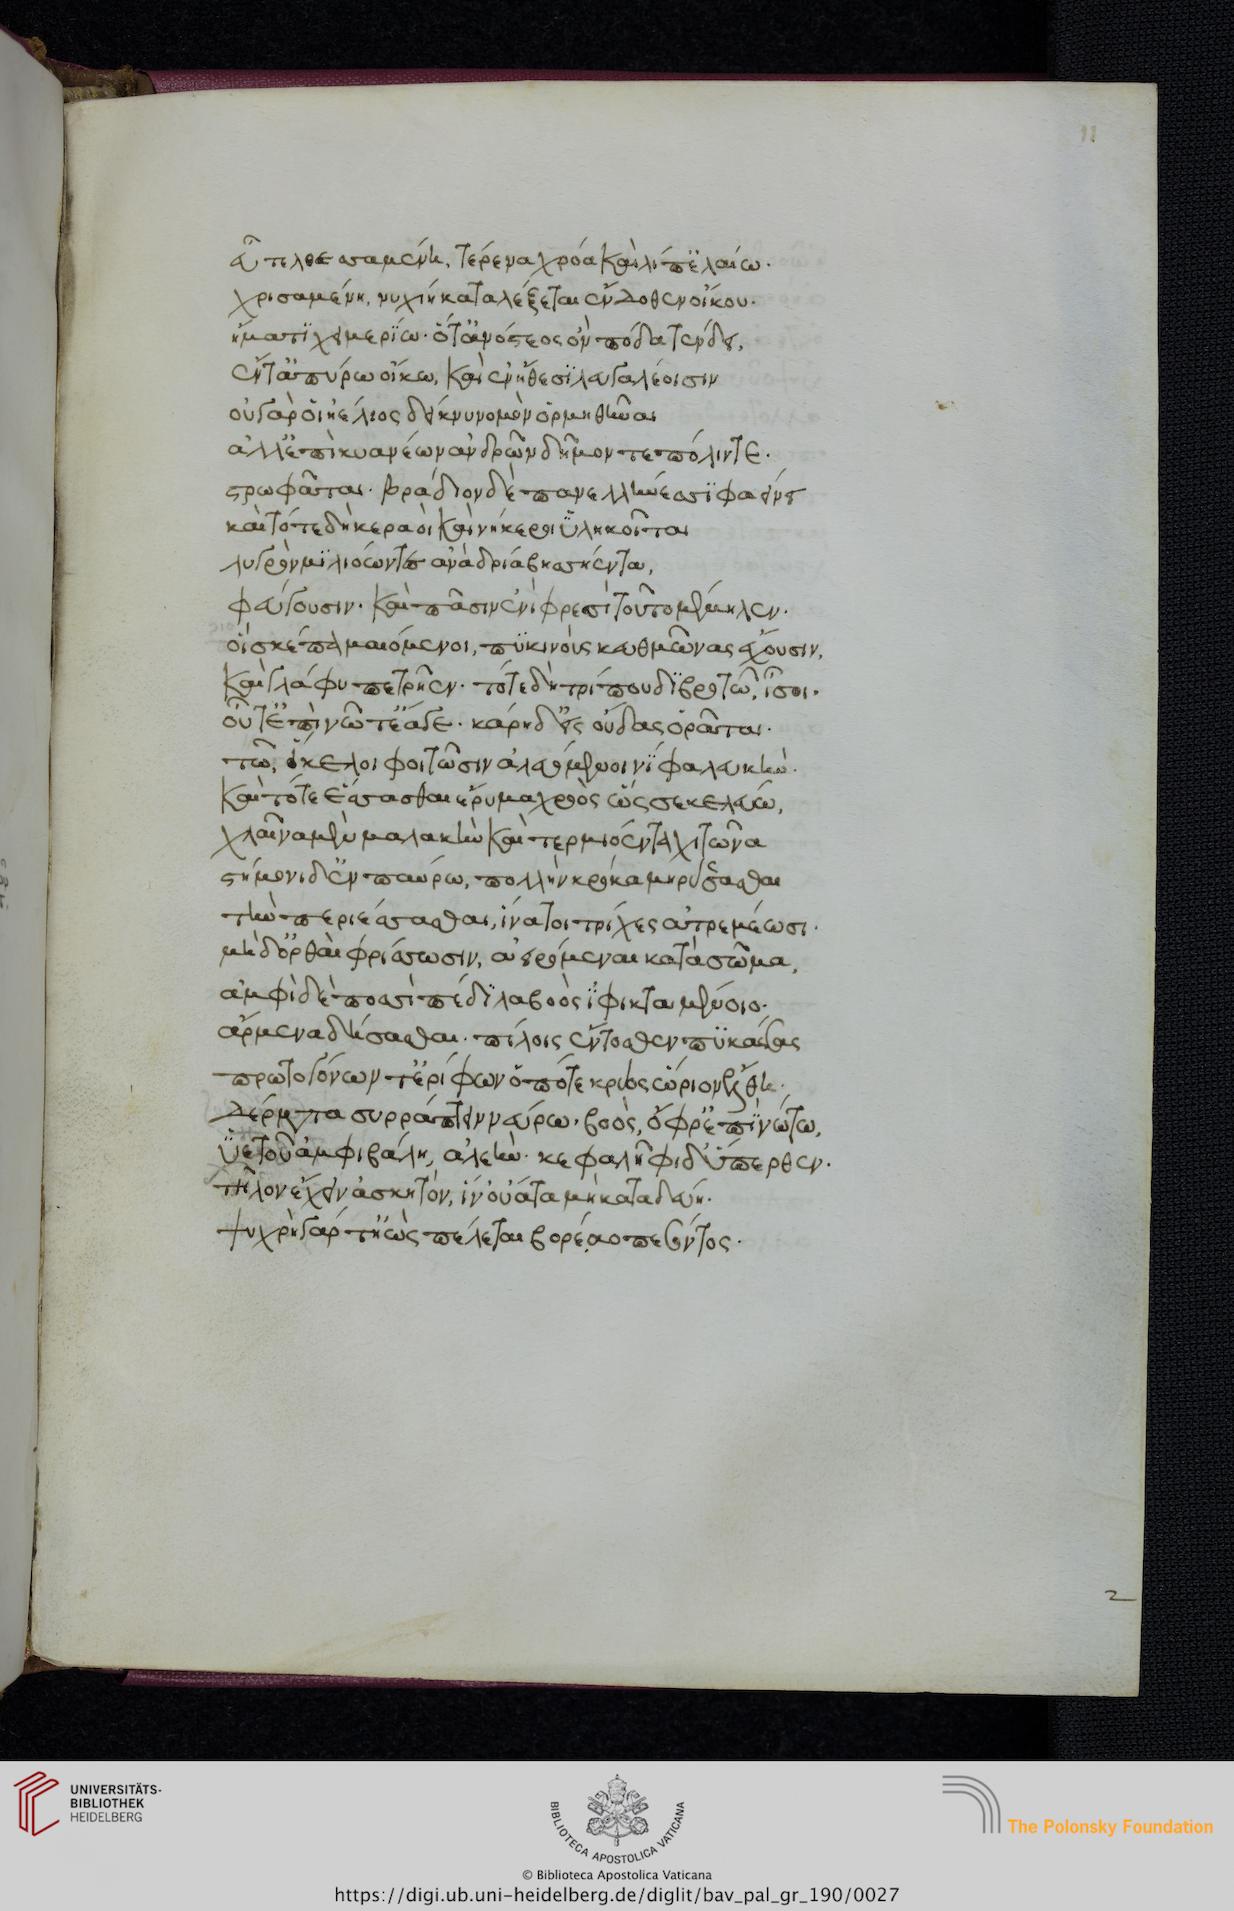 11
εὖ τε λοεσσαμένη, τέρενα χρόα καὶ λίπ' ἐλαίω.
χρισαμένη, νυχίη καταλέξεται ἔνδοθεν οἴκου.
ἤματι χειμερίω. ὅτ' ἀνόστεος ὃν πόδα τένδει,
ἔν τ' ἀπύρω οἴκω, καὶ ἐν ἤθεσι λευγαλέοισιν
οὐ γαρ οἱ ἠέλιος δείκνυ νομὸν ὁρμηθῆναι
ἀλλ' ἐπὶ κυανέων ἀνδρῶν δῆμον τε πόλιν τε.
στρωφᾶται. βράδιον δὲ πανελλήνεσσι φαείνει
καὶ τότε δὴ κεραοὶ καὶ νήκεροι ὑληκοῖται
λυγρὸν μυλιόωντες ἀνὰ δρία βησσήεντα,
φεύγουσιν. καὶ πᾶσιν ἐνὶ φρεσὶ τοῦτο μέμηλεν.
οἳ σκέπα μαιόμενοι, πυκινοὺς κευθμῶνας ἔχουσιν,
καὶ γλάφυ πετρῆεν. τότε δὴ τρίποδι βροτῶ, ἶσοι.
οὗ τ' ἐπὶ νῶτα ἔαγε. κάρη δ' εἰς οὖδας ὁρᾶται.
τῶ, ἴκελοι φοιτῶσιν ἀλευόμενοι νίφα λευκήν.
καὶ τότε ἕσσασθαι ἔρυμα χροὸς ὥς σε κελεύω,
χλαῖναν μὲν μαλακὴν καὶ τερμιόεντα χιτῶνα
στήμονι δ' ἐν παύρω, πολλὴν κρόκα μηρύσασθαι
τὴν περιέσσασθαι, ἵνα τοι τρίχες ἀτρεμέωσι.
μὴ δ' ὀρθαὶ φρίσσωσιν, ἀειρόμεναι κατὰ σῶμα,
ἀμφὶ δὲ ποσσὶ πέδιλα βοὸς ἶφι κταμένοιο.
ἄρμενα δήσασθαι. πίλοις ἔντοσθεν πυκάσσας
πρωτογόνων τ' ἐρίφων ὁπότε κρύος ὥριον ἔλθη.
δέρματα συρράπτειν νεύρω. βοὸς, ὄφρ' ἐπὶ νώτω,
ὑετοῦ ἀμφιβάλη, ἀλεήν. κεφαλῆφι δ' ὕπερθεν.
πῖλον ἔχειν ἀσκητόν, ἵν' οὔατα μὴ καταδεύη.
ψυχρὴ γάρ τ' ἠὼς πέλεται βορέαο πεσόντος.
2
UNIVERSITÄTS-
BIBLIOTHEK
HEIDELBERG
BIBLIOTECA APOSTOLICA VATICANA
The Polonsky Foundation
© Biblioteca Apostolica Vaticana
https://digi.ub.uni-heidelberg.de/diglit/bav_pal_gr_190/0027